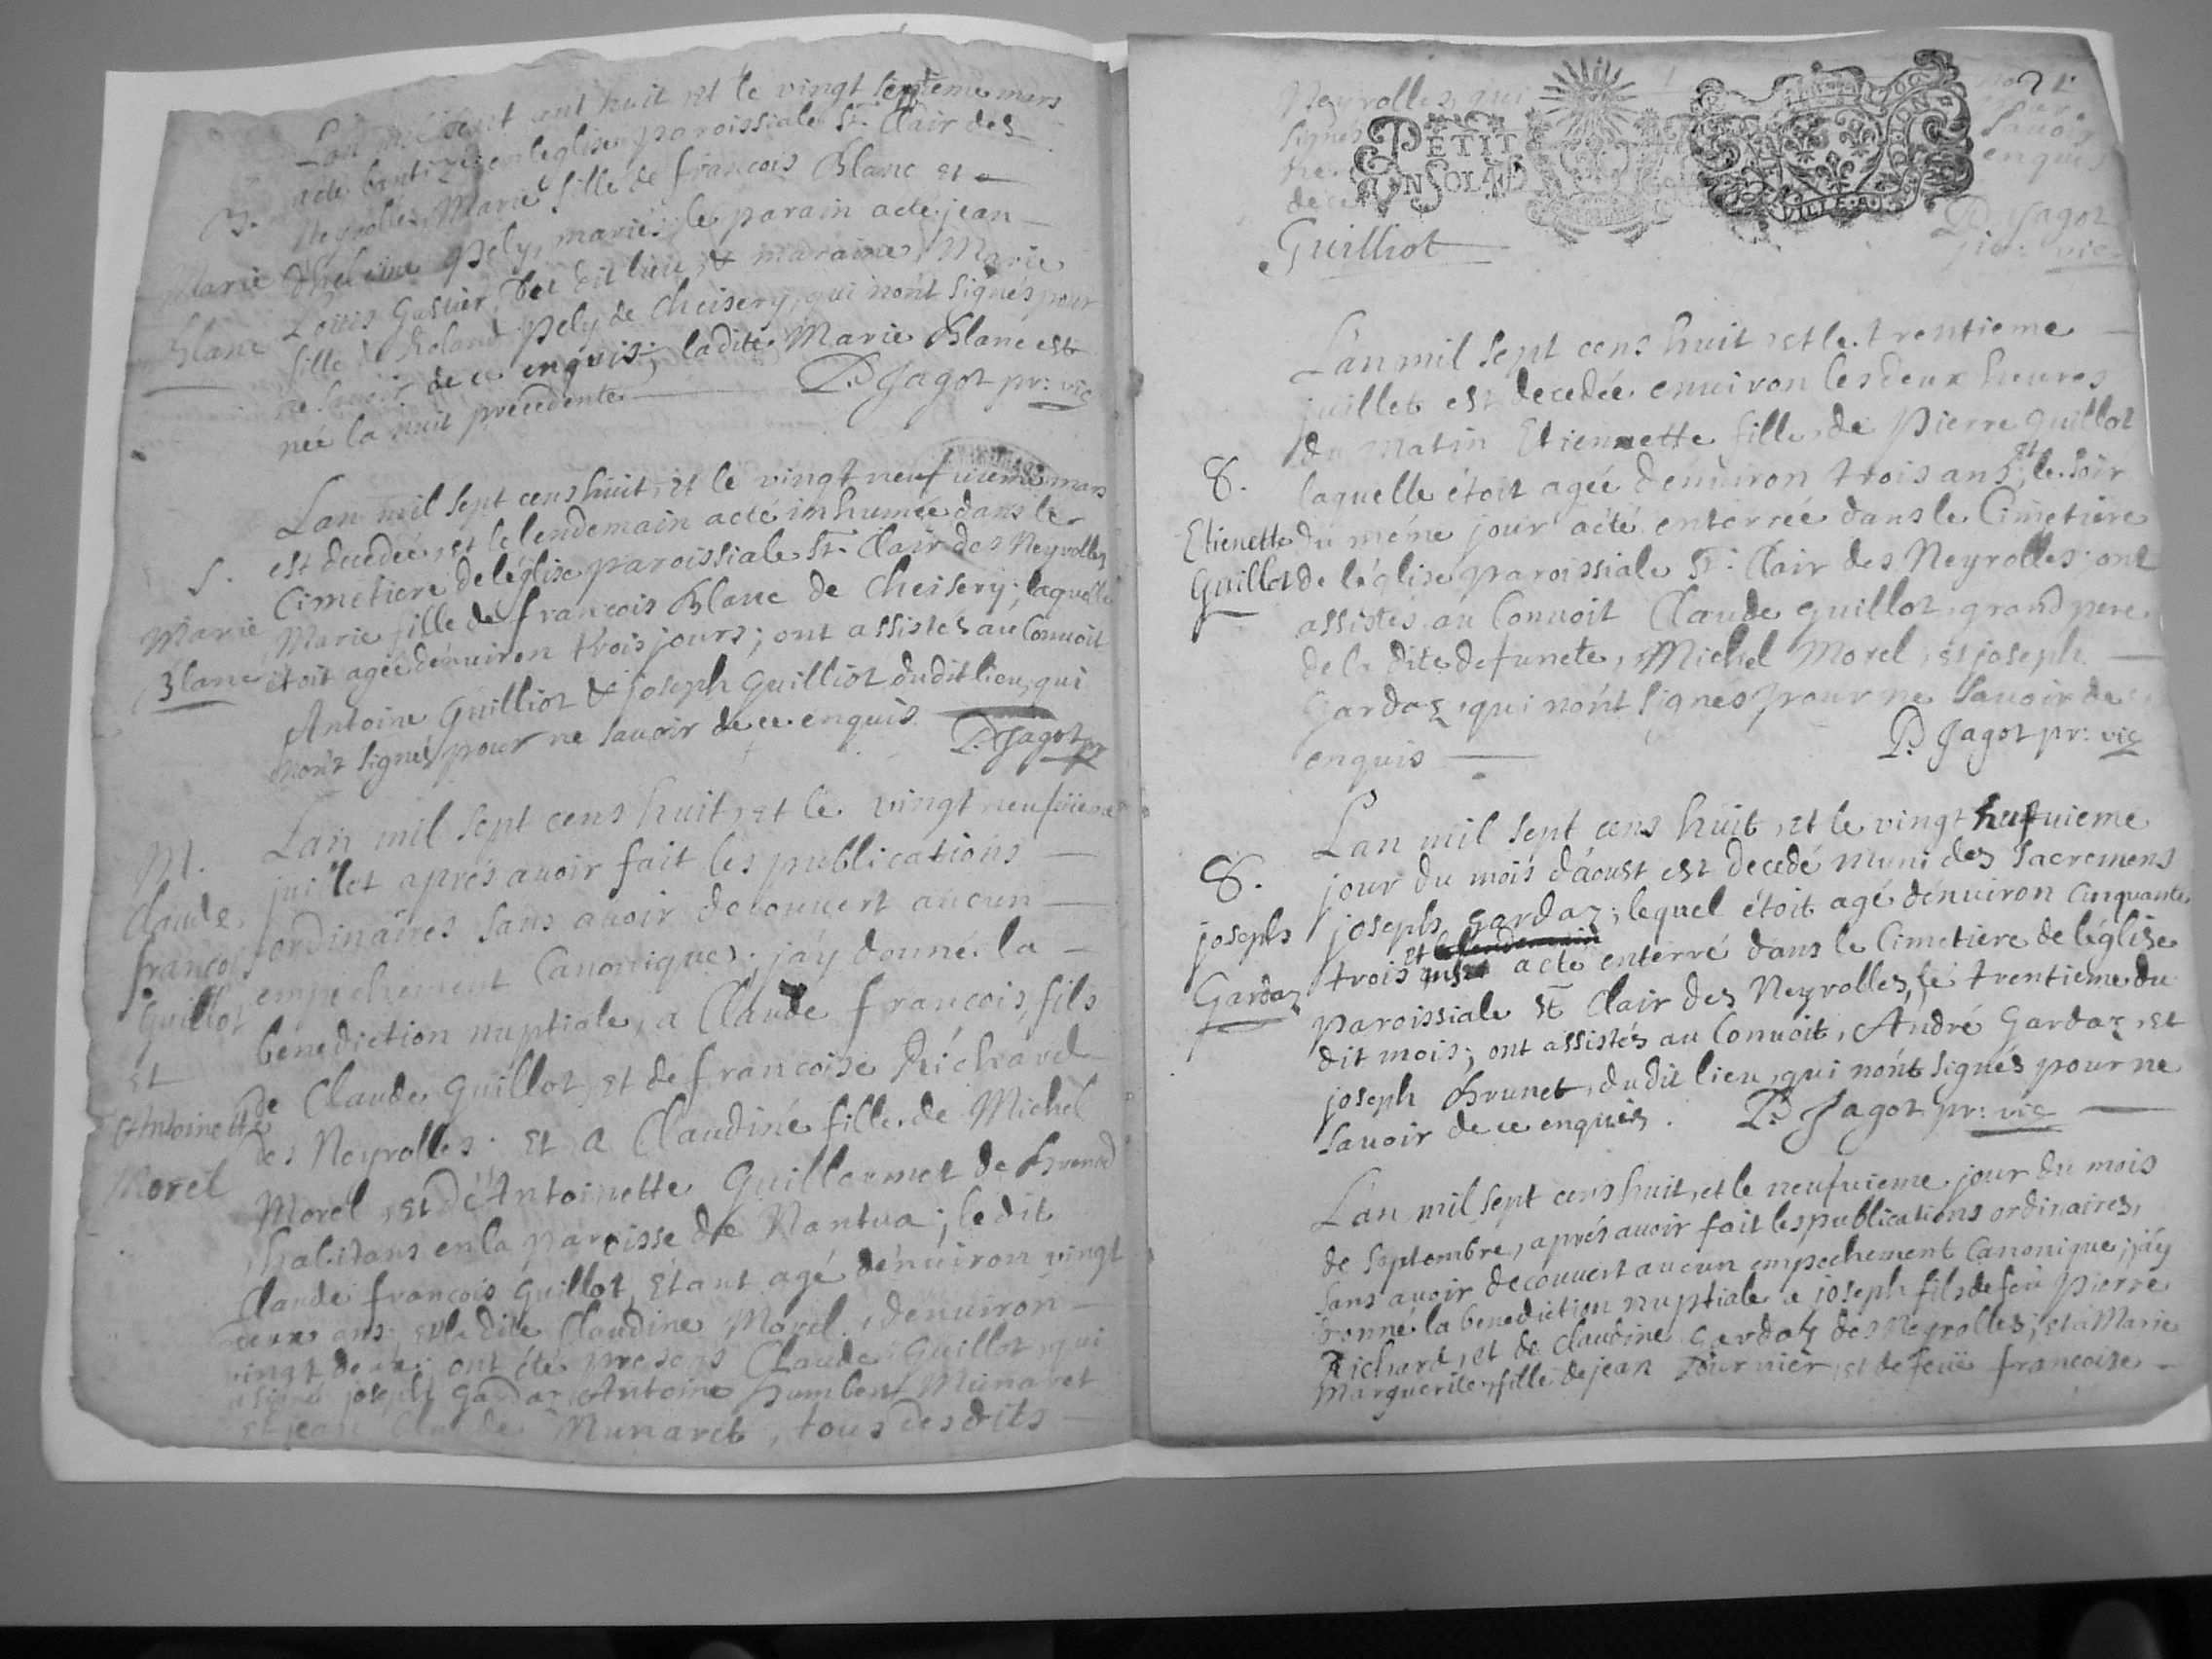 Lan mil sept cent huit et le vingt septieme mars
B. a été baptizée en leglise paroissiale St. Clair des
Neyrolles, Marie fille de francois Blanc et
Marie pely, mariés; le parain a été jean
Blanc Louis du dit lieu & maraine, Marie
fille de Roland pely de Cheisery, qui nónt signés pour
ne savoir de ce enquis; ladite Marie Blanc est
née la nuit precedente
P. Jagot pr: vic
Lan mil sept cens huit, et le vingt neufuieme mars
est decedée, et le lendemain a été inhumée dans le
S. Cimetiere de léglise paroissiale St. Clair des Neyrolles
Marie Marie fille de francois Blanc de Cheisery; laquelle
Blanc étoit agée dénuiron trois jours; ont assistés au Conuoit
Antoine Guilliot & joseph Guilliot du dit lieu, qui
nónt signés pour ne sauoir de ce enquis
P. Jagot pr
M. Lan mil sept cens huit, et le vingt neufuieme
Claude juillet aprés auoir fait les publications
francois ordinaires sans auoir decouuert aucun
Guillot empechement Canonique; jay donné la
benediction nuptiale, a Claude francois, fils
Et de Claude Guillot, et de francoise Richard
Antoinette des Neyrolles. Et a Claudine fille de Michel
Morel Morel, et dé Antoinette Guillermet de
habitans en la paroisse de Nantua; le dit
Claude francois Guillot, étant agé dénuiron vingt
deux ans; et la dite Claudine Morel, denuiron
vingt deux; ont été presens Claude Guillot, qui
a signé joseph Gardaz Antoine humbert Munaret
et jean Claude Munaret, tous des dits
Neyrolles, qui
signés
sauoir
enquis
PETIT
VN SOL
Guilliot
P. Jagot
vic
Lan mil sept cens huit, et le trentieme
juillet est decedée enuiron les deux heures
du matin Etiennette fille de Pierre guillot
8. laquelle étoit agée dénuiron trois ans, et le soir
Etienette du méme jour a été enterrée dans le Cimetiere
Guillot de léglise paroissiale St. Clair des Neyrolles; ont
assistés au Conuoit Claude guillot, grand pere
de la dite defuncte, Michel Morel, et joseph
Gardaz, qui nónt signés pour ne sauoir de
enquis
P. Jagot pr: vic
Lan mil sept cens huit, et le vingt huituieme
8. jour du mois dáoust est decedé muni des sacremens
joseph joseph gardaz; lequel étoit agé dénuiron Cinquante
et le lendemain
Gardaz trois ans a été enterré dans le Cimetiere de léglise
paroissiale St Clair des Neyrolles, le trentieme du
dit mois; ont assistés au Conuoit, André Gardaz, et
joseph Brunet, du dit lieu, qui nónt signés pour ne
sauoir de ce enquis. P. Jagot pr: vic
Lan mil sept cens huit, et le neufuieme jour du mois
de septembre, aprés auoir fait les publications ordinaires,
sans auoir decouuert aucun empechement Canonique; jáy
donné la benediction nuptiale a joseph fils de feu pierre
Richard, et de Claudine gardaz des Neyrolles; et a Marie
Marguerite, fille de jean et de feüe francoise